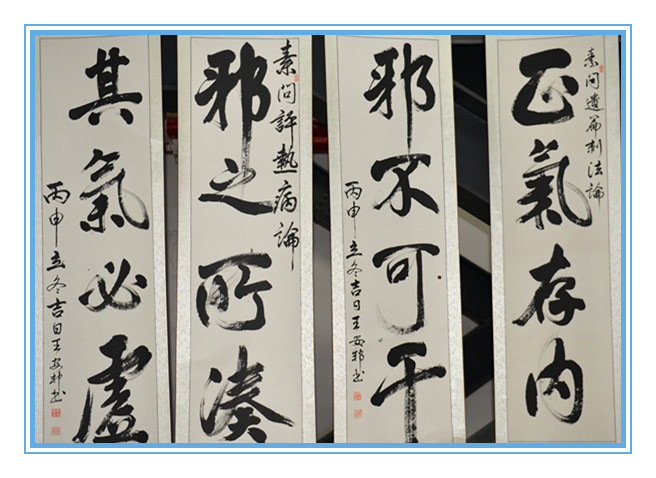 素问遺篇刺法論
正氣存内
邪不可干
丙申立冬吉日王安邦书
素问評熱病論
邪之所湊
其氣必虚
丙申立冬吉日王安邦书